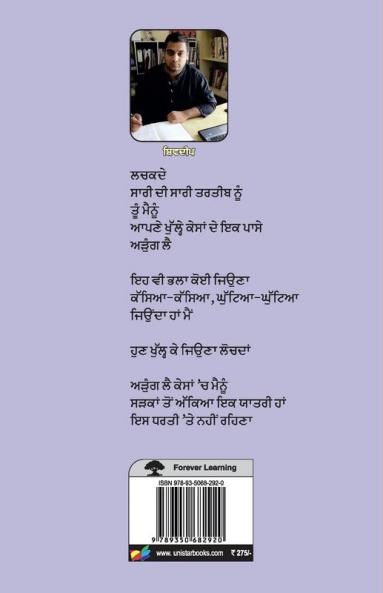 ਸ਼ਿਵਦੀਪ
ਲਚਕਦੇ
ਸਾਰੀ ਦੀ ਸਾਰੀ ਤਰਤੀਬ ਨੂੰ
ਤੂੰ ਮੈਨੂੰ
ਆਪਣੇ ਖੁੱਲ੍ਹੇ ਕੇਸਾਂ ਦੇ ਇਕ ਪਾਸੇ
ਅੜੁੰਗ ਲੈ
ਇਹ ਵੀ ਭਲਾ ਕੋਈ ਜਿਉਣਾ
ਕੱਸਿਆ-ਕੱਸਿਆ, ਘੁੱਟਿਆ-ਘੁੱਟਿਆ
ਜਿਉਂਦਾ ਹਾਂ ਮੈਂ
ਹੁਣ ਖੁੱਲ੍ਹ ਕੇ ਜਿਉਣਾ ਲੋਚਦਾਂ
ਅੜੁੰਗ ਲੈ ਕੇਸਾਂ ’ਚ ਮੈਨੂੰ
ਸੜਕਾਂ ਤੋਂ ਅੱਕਿਆ ਇਕ ਯਾਤਰੀ ਹਾਂ
ਇਸ ਧਰਤੀ ’ਤੇ ਨਹੀਂ ਰਹਿਣਾ
Forever Learning
ISBN 978-93-5068-292-0
9 789350 682920
www. unistarbooks.com ₹ 275/-